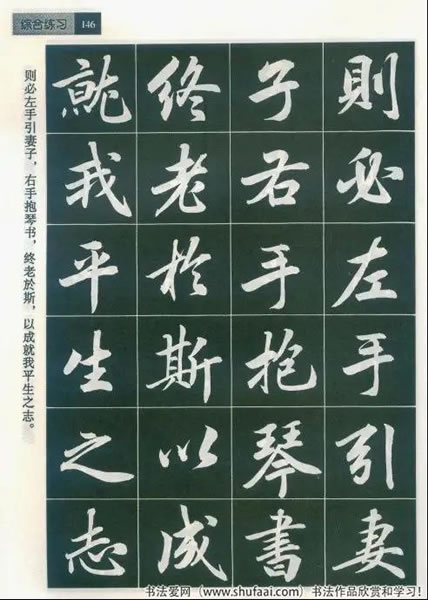 综合练习 146
则必左手引妻子，右手抱琴书，终老於斯，以成就我平生之志。
則必左手引妻
子右手抱琴書
終老於斯以成
就我平生之志
书法爱网（www.shufaai.com）书法作品欣赏和学习！